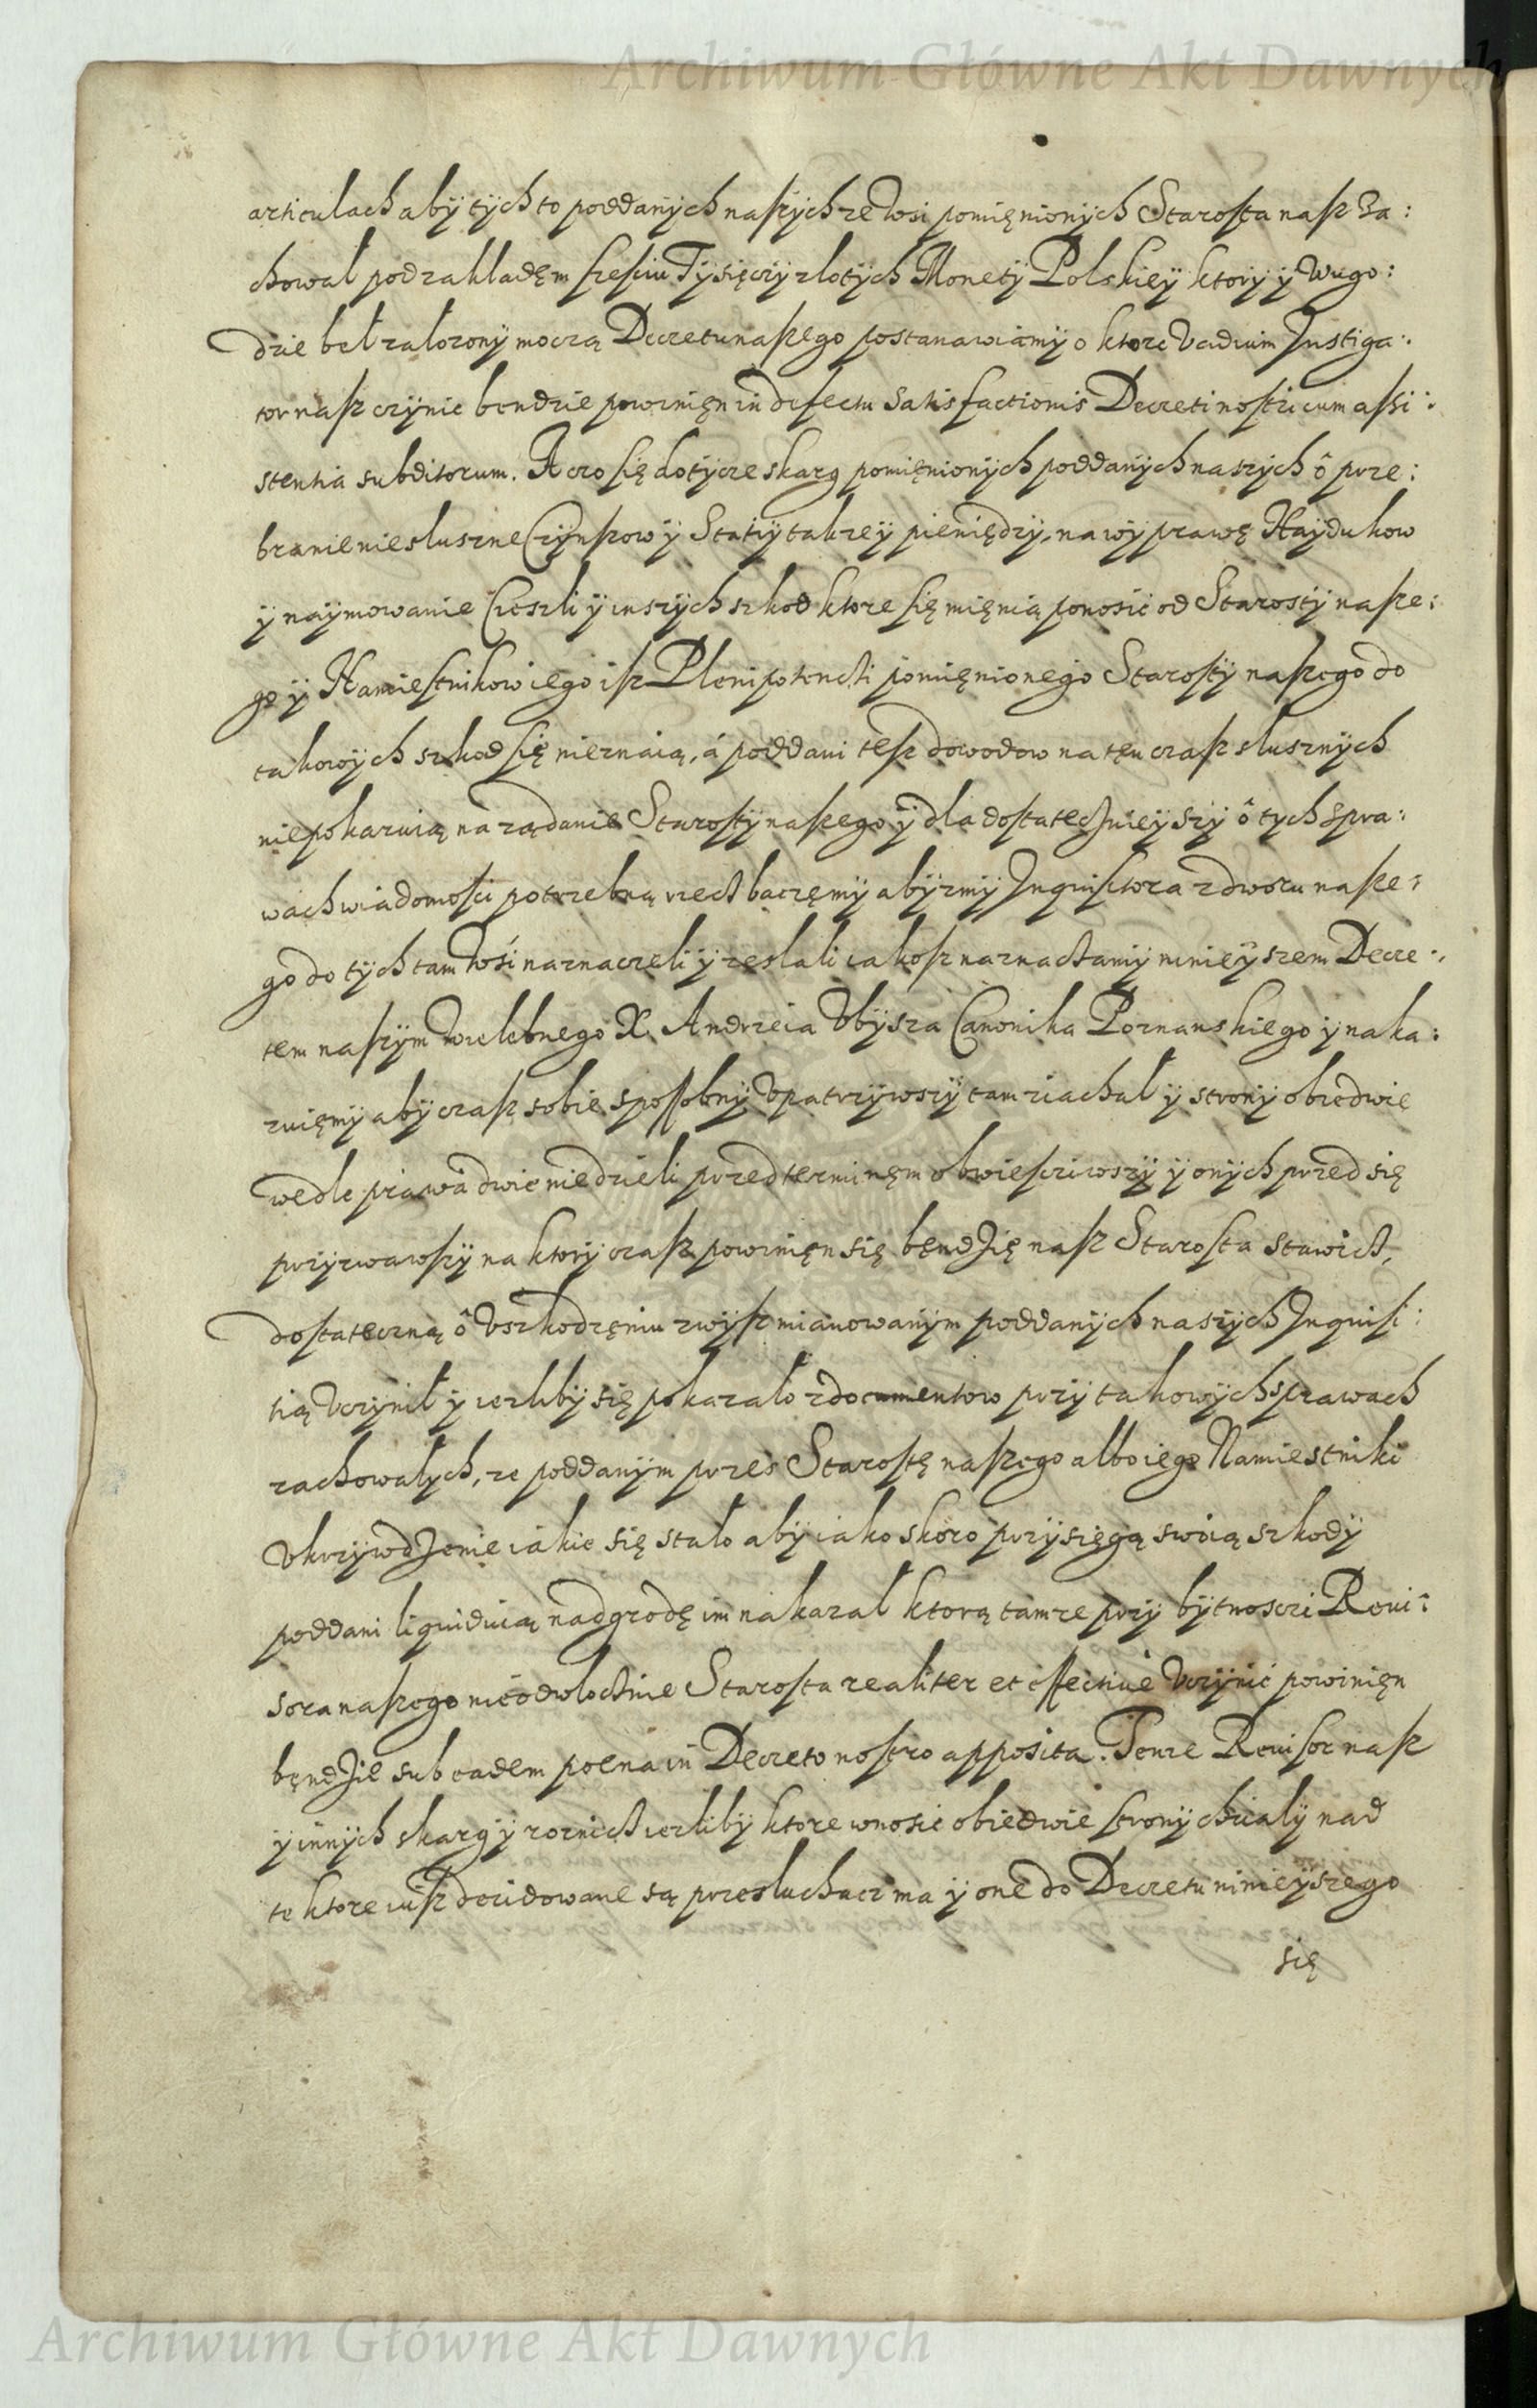 Archiwum Główne Akt Dawnych
articulach aby tych to poddanych naszych ze wsi pomięnionych Starosta nasz Za:
chował pod zakladęm sześciu Tysięcy zlotych Monety Polskiey ktory y w ugo:
dzie beł zalozony moczą Decretu naszego postanawiamy o ktore Vadium Instiga:
tor nasz czynic bendzie powinięn in defectu Satisfactionis Decreti nostri cum assi:
stentia subditorum. A czo się dotycze skarg pomięnionych poddanych naszych ô prze:
branie niesluszne Czynszow y Statiy takze y pieniędzy, na wyprawę Haydukow
y naymowanie Czeszli y inszych szkod ktore się mięnią ponosic od Starosty nasze:
go y Namiestnikow iego isz Plenipotenczi pomięnionego Starosty naszego do
takowych szkod się nieznaią, á poddani tesz dowodow na tęn czasz slusznych
nie pokazuią na ządanie Starosty naszego y dla dostatecznieyszy ô tych spra:
wach wiadomosci potrzebną rzecz baczęmy abyzmy Inquisitora z dworu nasze:
go do tych tam wsi naznaczeli y zeslali iakosz naznaczamy ninieyszem Decre:
tem naszym wielebnego X. Andrzeia Vbysza Canonika Poznanskiego y naka:
zuięmy aby czasz sobie sposobny Vpatrzywszy tam ziachał y strony obiedwie
wedle prawa dwie niedzieli przed terminęm obwiesciwszy y onych przed się
przyzwawszy na ktory czasz powinięn się będzię nasz Starosta stawicz,
dostateczną ô Vszkodzęniu zwysz mianowanym poddanych naszych Inquisi:
tią Vczynił y iezliby się pokazało z documentow przy takowych sprawach
zachowałych, ze poddanym przes Starostę naszego albo iego Namiestniki
Vkrzywdzenie iakie się stało aby iako skoro przysięgą swoią szkody
poddani liquiduią nadgrodę im nakazał ktorą tamze przy bytnosczi Reui:
sora naszego nieodwlocznie Starosta realiter et effectiue Vczynić powinięn
będzie sub eadem poena in Decreto nostro apposita. Tenze Reuisor nasz
y innych skarg y roznicz iezliby ktore wnosic obiedwie strony chciały nad
te ktore iusz decidowane są przesluchacz ma y one do Decretu ninieyszego
się
Archiwum Główne Akt Dawnych